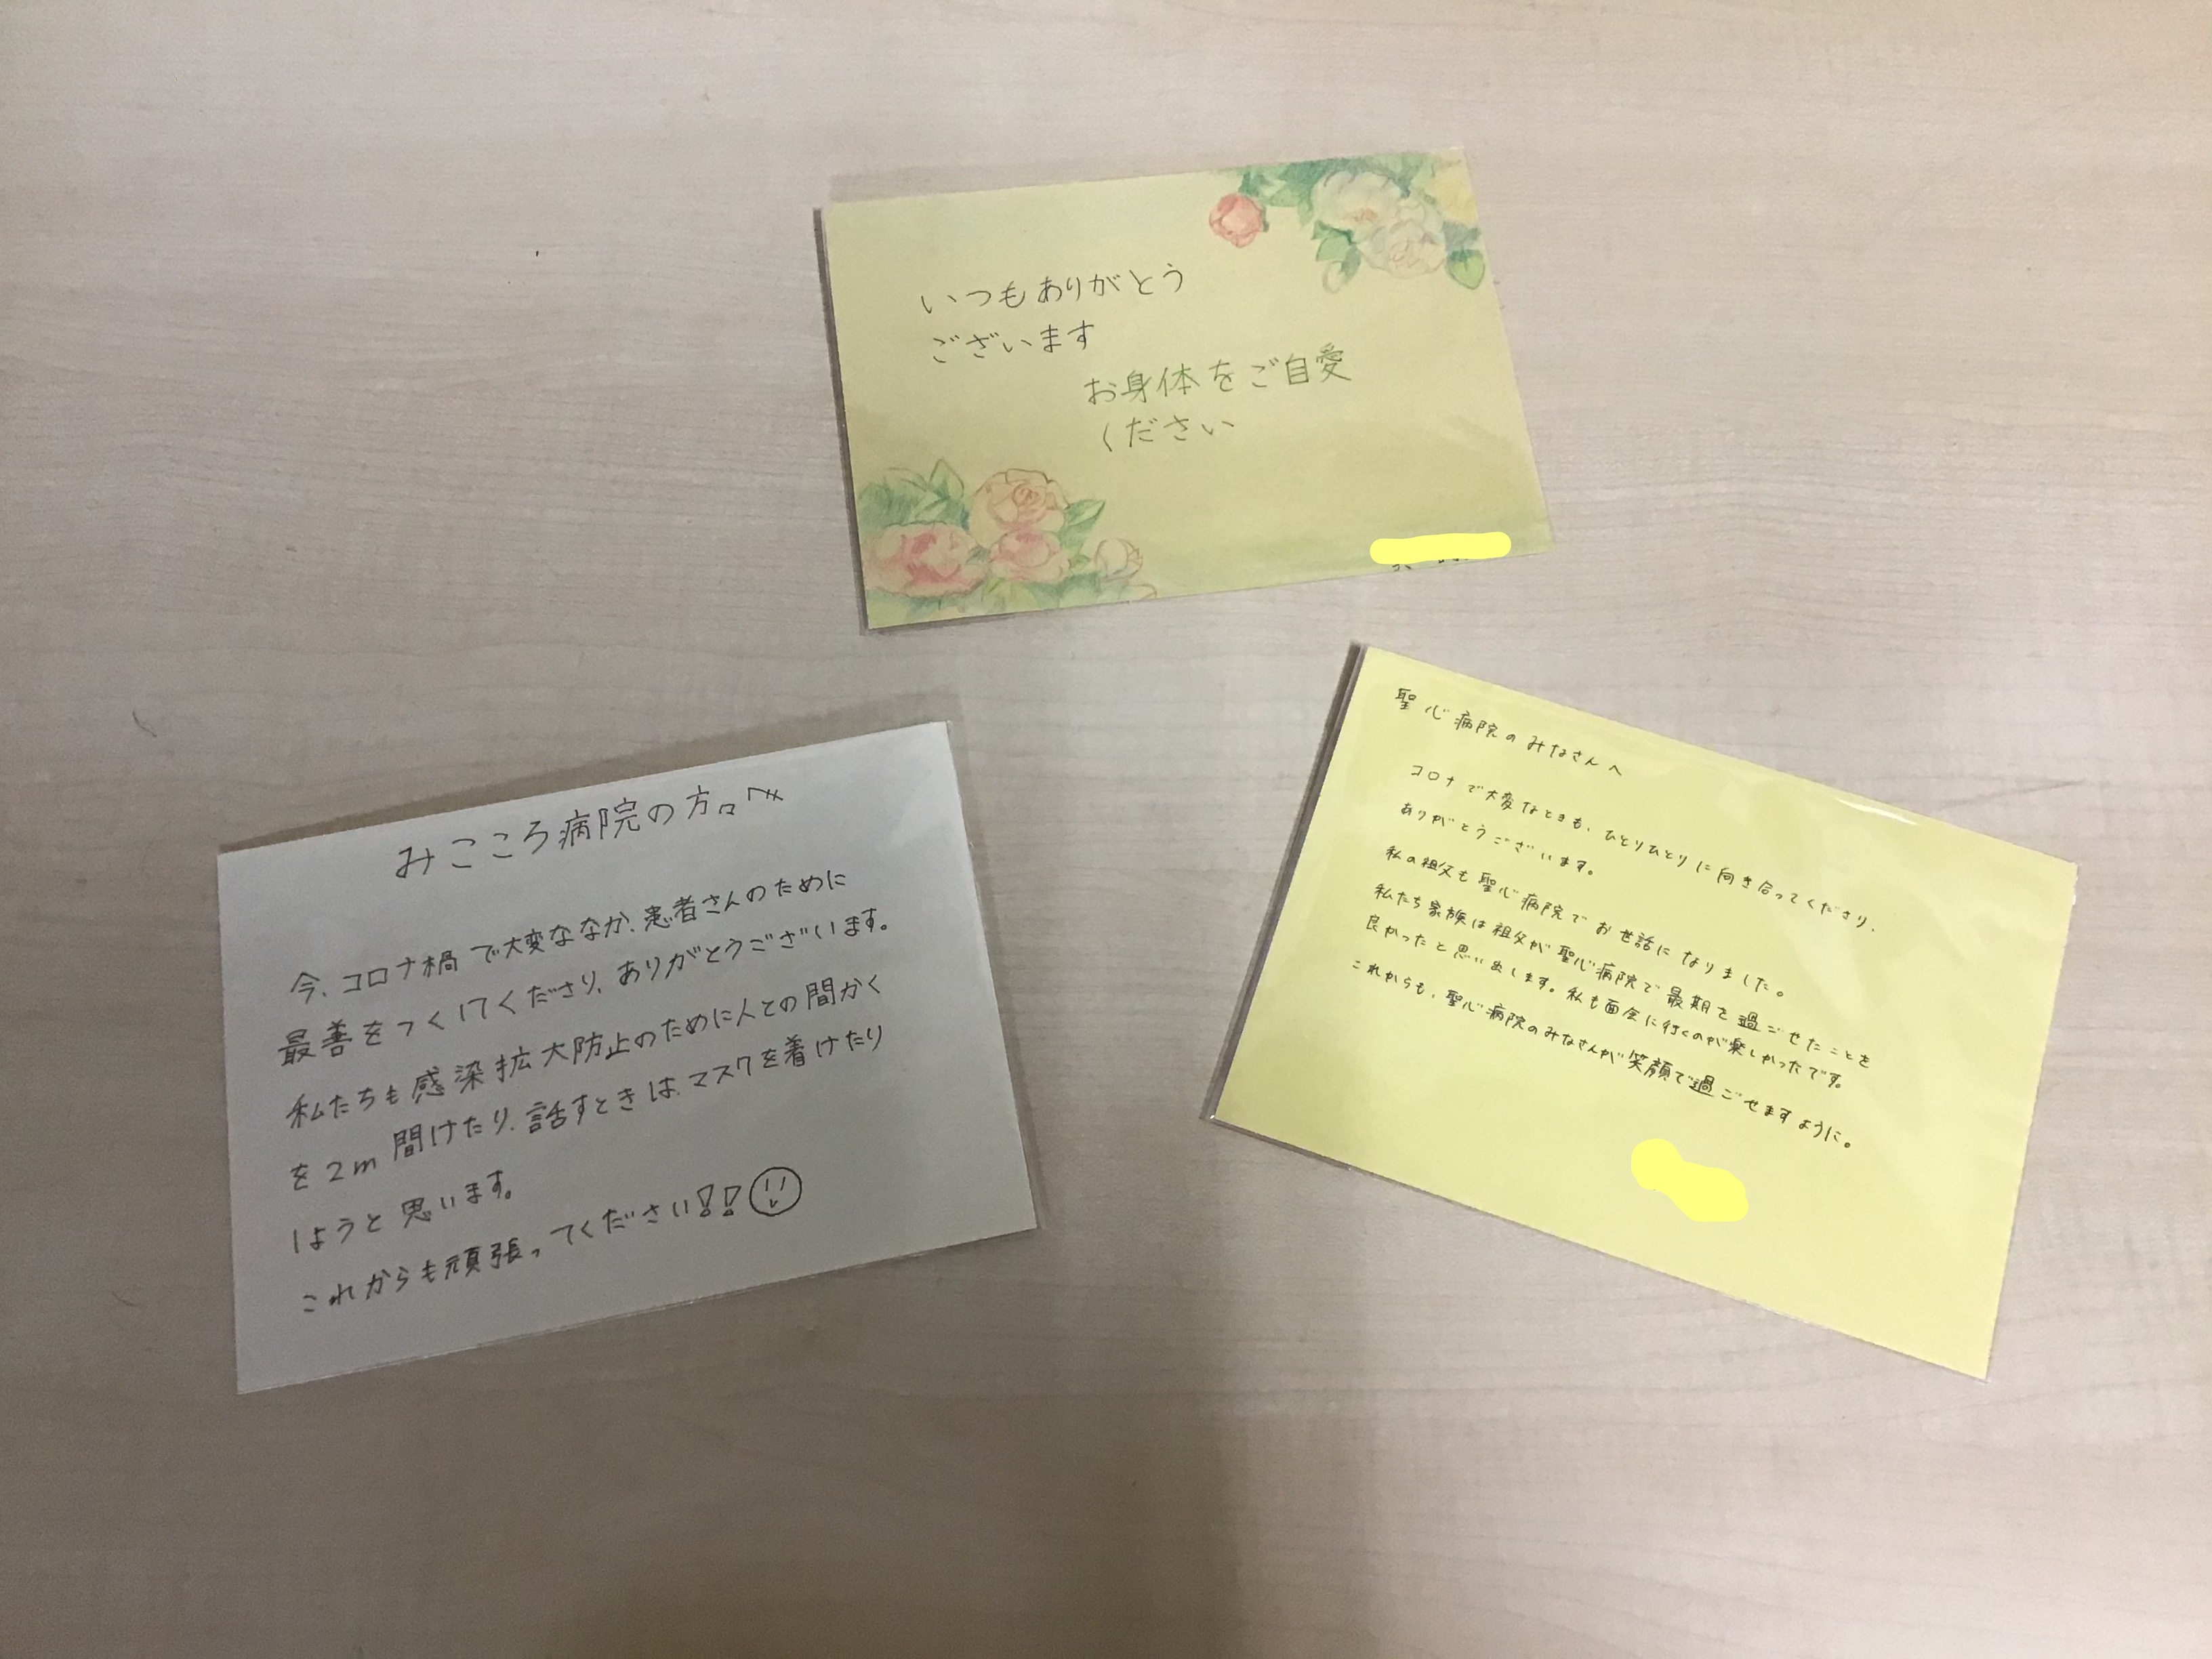 いつもありがとう
ございます
お身体をご自愛
ください
みこころ病院の方々へ
今、コロナ禍で大変ななか、患者さんのために
最善をつくけてくださり、ありがとうございます。
私たちも感染拡大防止のために人との間かく
を2m 間けたり、話すときは、マスクを着けたり
しようと思います。
これからも頑張ってください!!
聖心病院のみなさんへ
コロナで大変なときも、ひとりひとりに向き合ってくださり、
ありがとうございます。
私の祖父も聖心病院でお世話になりました。
私たち家族は祖父が聖心病院で最期を過ごせたことを
良かったと思い出します。私も面会に行くのが楽しかったです。
これからも、聖心病院のみなさんが笑顔で過ごせますように。